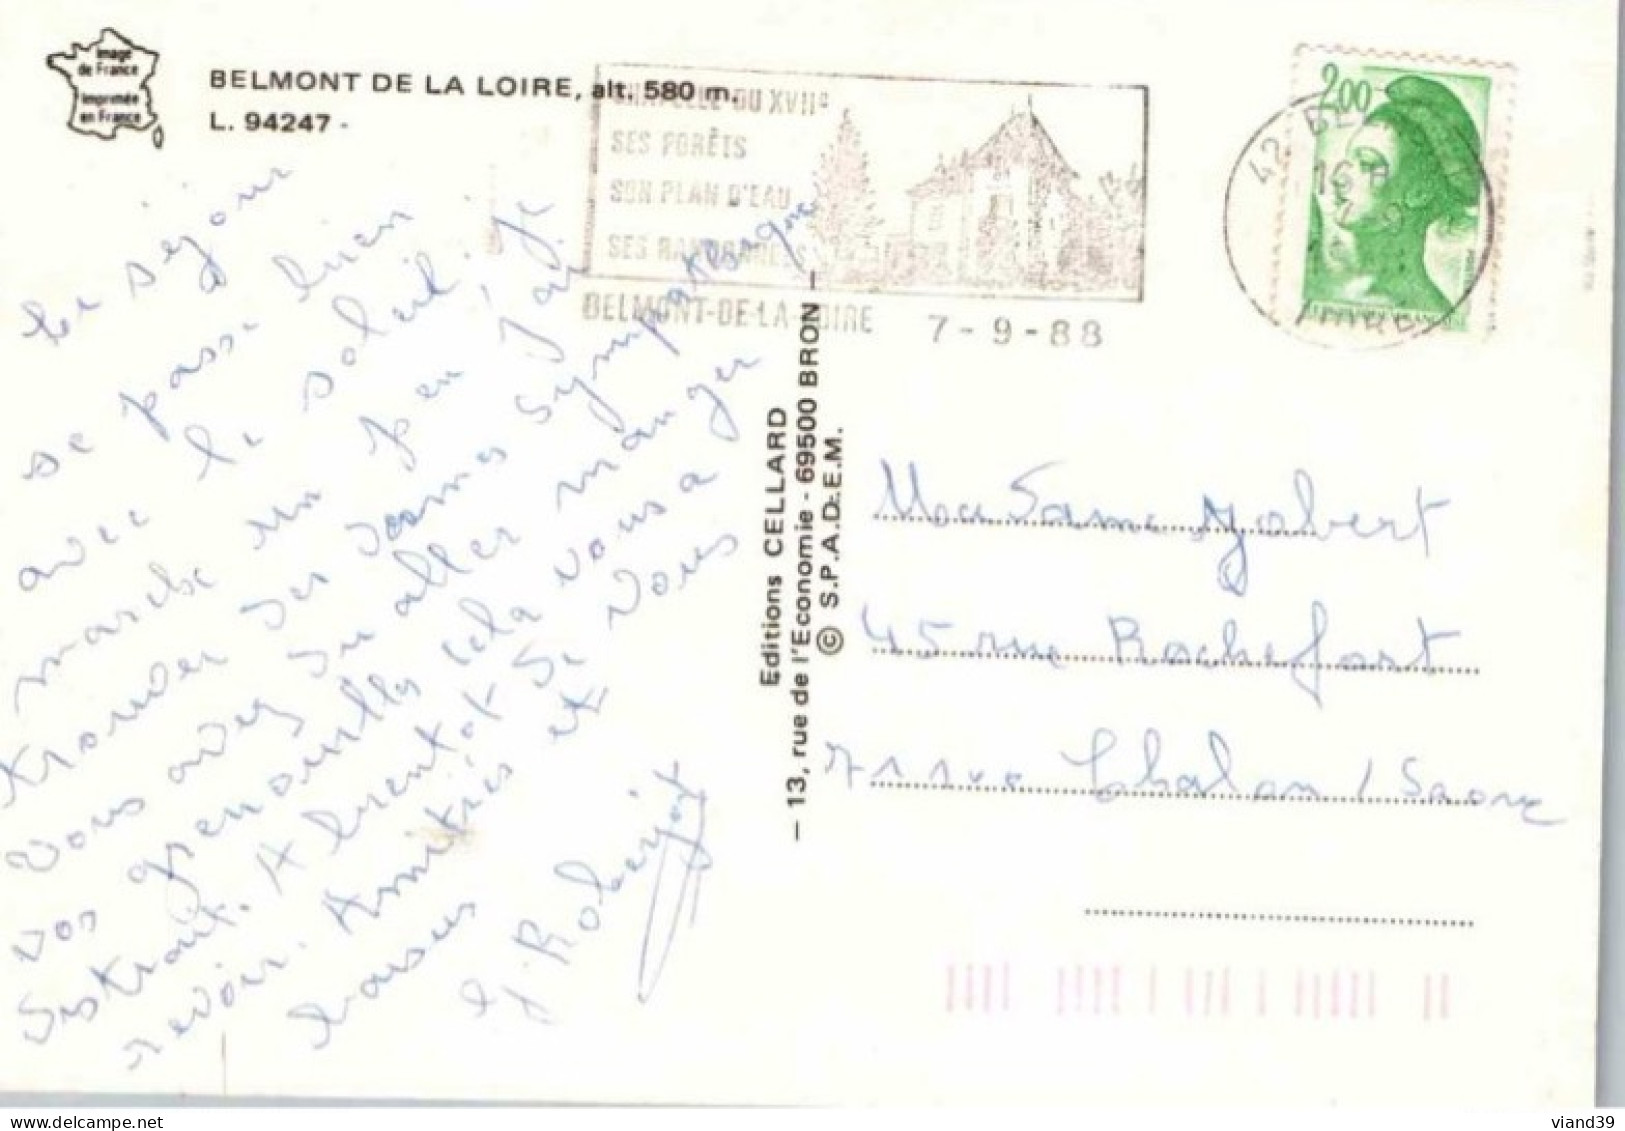 Image
de France
Imprimée
en France
BELMONT DE LA LOIRE, alt. 580 m.
L. 94247 -
CHAPELLE DU XVIIe
SES FORÊTS
SON PLAN D'EAU
SES RANDONNEES
BELMONT-DE-LA-LOIRE 7-9-88
2,00
Le séjour
se passe bien
avec le soleil, je
marche un peu j'ai
trouver des dames sympathique
Vous avez du aller manger
vos grenouilles cela vous a
distrait. A bientot de vous
revoir. Amitiés et
baisers
Editions CELLARD
- 13, rue de l'Economie - 69500 BRON -
© S.P.A.D.E.M.
Madame Jobert
45 rue Rochefort
71100 Chalon / Saone
viand39